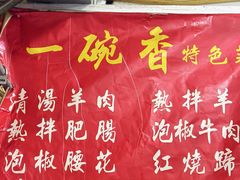 一碗香 特色
清湯羊肉 熱拌羊
熱拌肥腸 泡椒牛肉
泡椒腰花 紅燒蹄